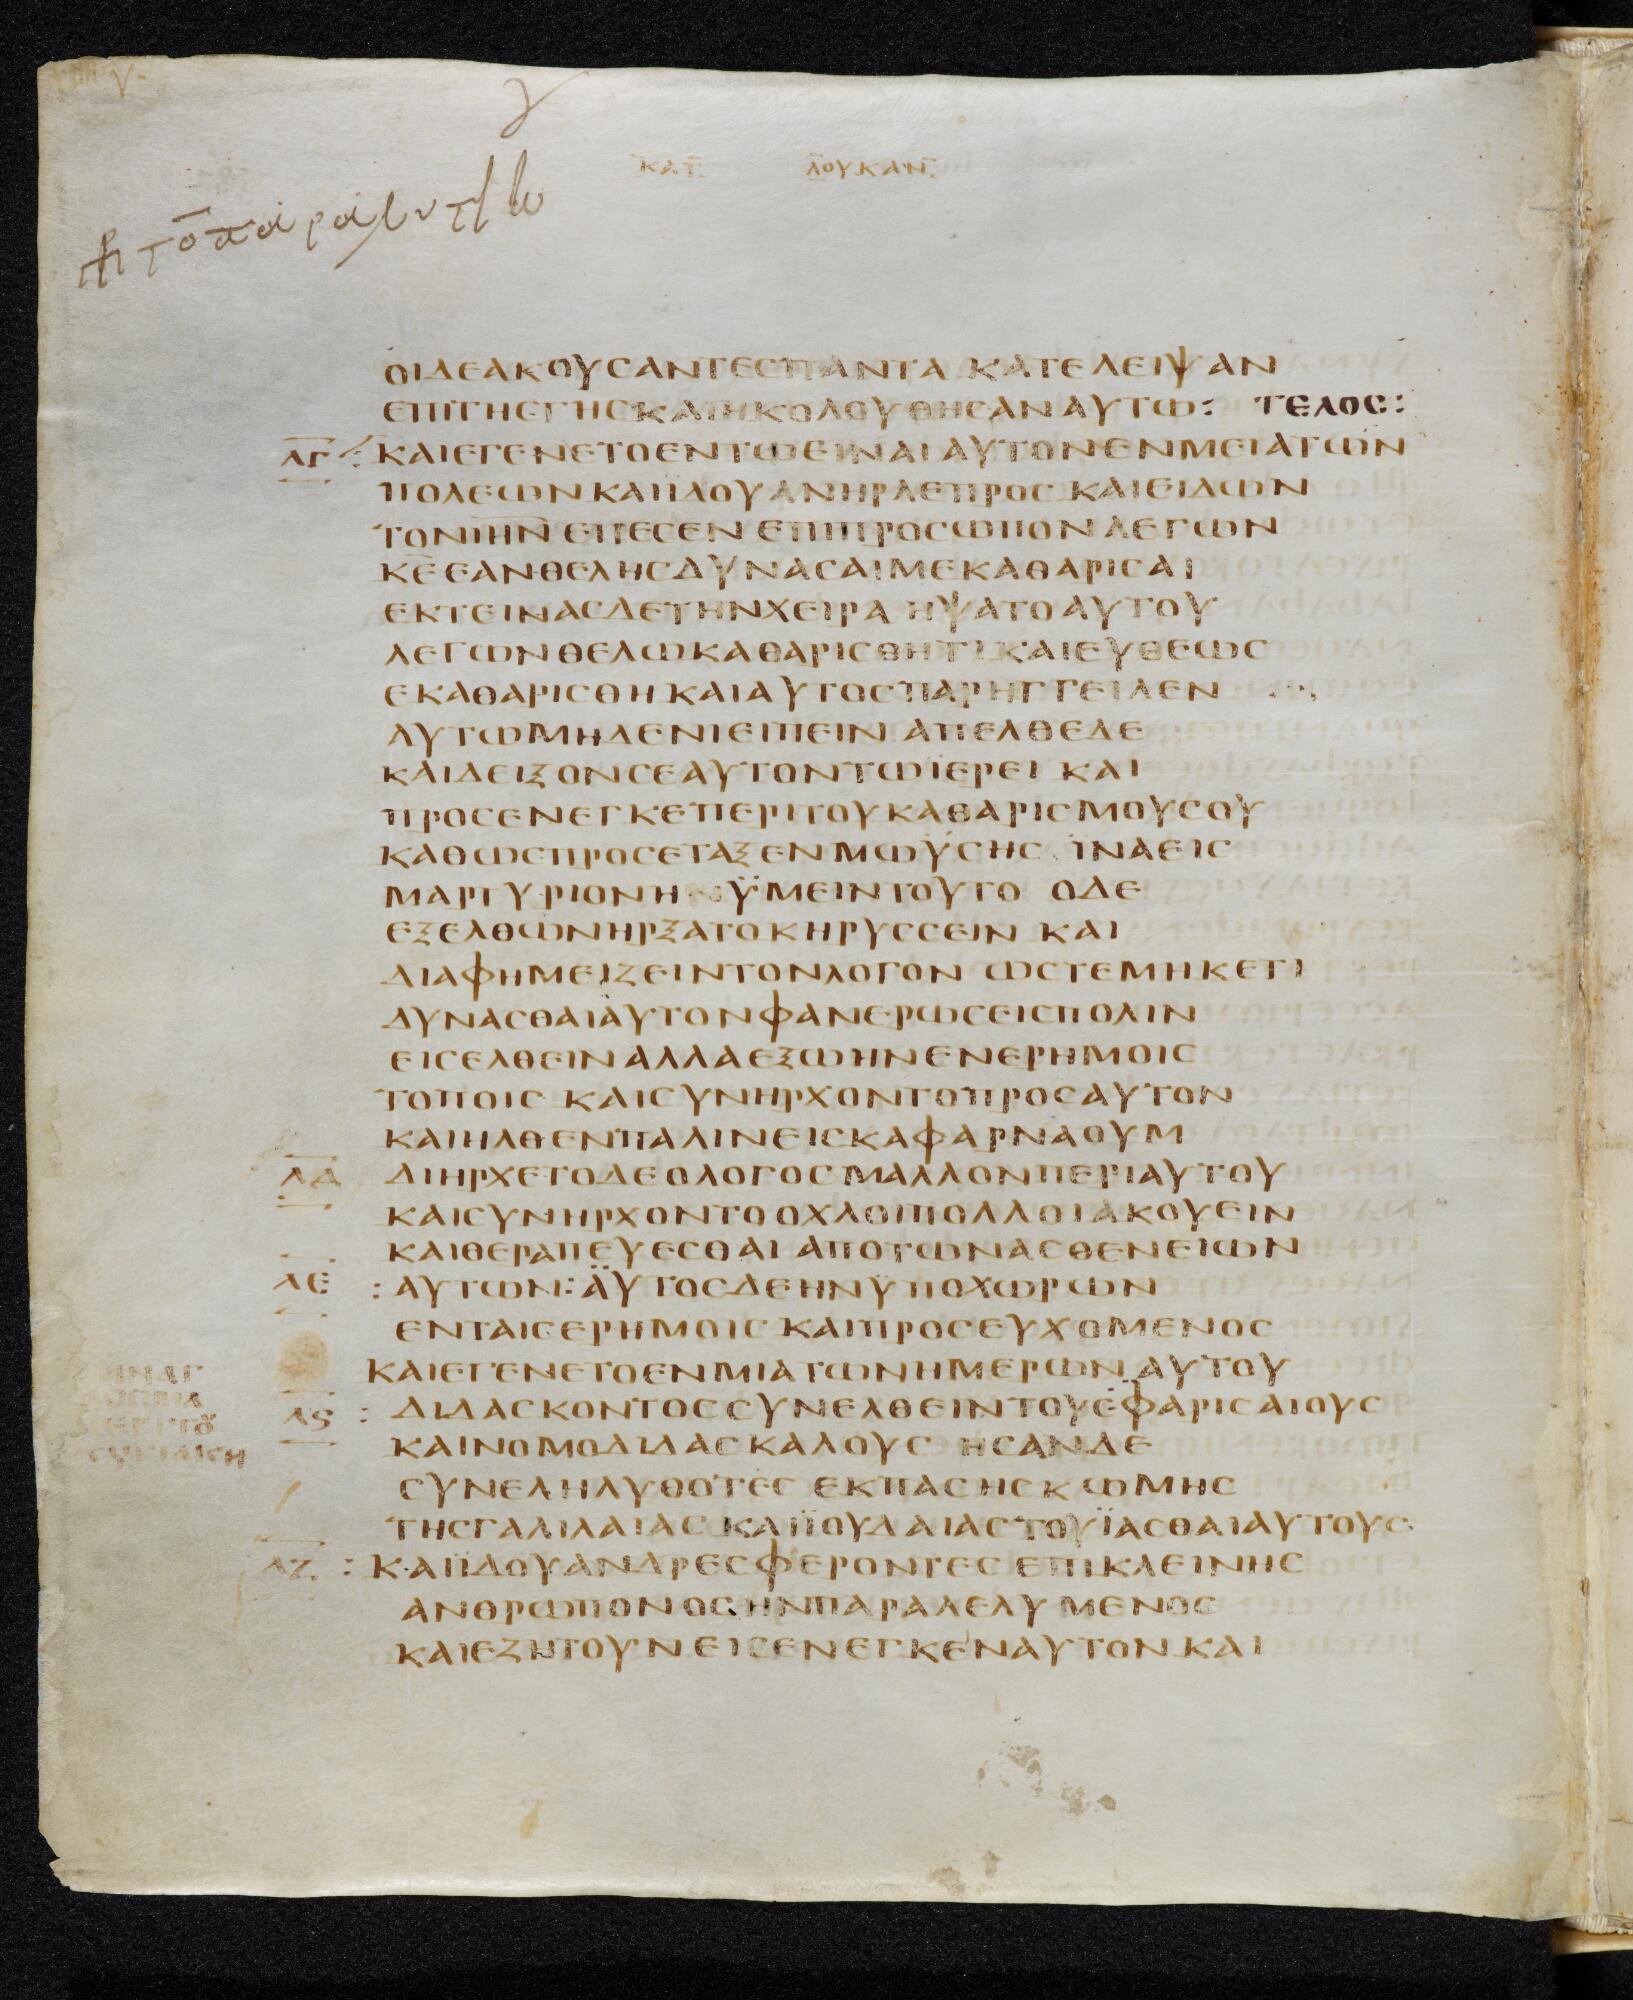 ΚΑΤ ΛΟΥΚΑΝ
ΟΙΔΕΑΚΟΥСΑΝΤΕСΠΑΝΤΑ ΚΑΤΕΛΕΙΨΑΝ
ΕΠΙΤΗΕΓΗСΚΑΙΗΚΟΛΟΥΘΗСΑΝΑΥΤΩ: ΤΕΛΟС:
ΛΓ : ΚΑΙΕΓΕΝΕΤΟΕΝΤΩΕΙΝΑΙΑΥΤΟΝΕΝΜΕΙΑΤΩΝ
ΠΟΛΕΩΝΚΑΙΪΔΟΥΑΝΗΡΛΕΠΡΟС ΚΑΙΕΙΔΩΝ
ΤΟΝΙΗΝ ΕΠΕСΕΝ ΕΠΙΠΡΟСΩΠΟΝ ΛΕΓΩΝ
ΚΕ ΕΑΝΘΕΛΗСΔΥΝΑСΑΙΜΕΚΑΘΑΡΙСΑΙ
ΕΚΤΕΙΝΑСΔΕΤΗΝΧΕΙΡΑ ΗΨΑΤΟΑΥΤΟΥ
ΛΕΓΩΝΘΕΛΩΚΑΘΑΡΙСΘΗΤΙ ΚΑΙΕΥΘΕΩС
ΕΚΑΘΑΡΙСΘΗ ΚΑΙΑΥΤΟС ΠΑΡΗΓΓΕΙΛΕΝ
ΑΥΤΩΜΗΔΕΝΙΕΙΠΕΙΝ ΑΠΕΛΘΕΔΕ
ΚΑΙΔΕΙΞΟΝСΕΑΥΤΟΝΤΩΪΕΡΕΙ ΚΑΙ
ΠΡΟСΕΝΕΓΚΕΠΕΡΙΤΟΥΚΑΘΑΡΙСΜΟΥСΟΥ
ΚΑΘΩСΠΡΟСΕΤΑΞΕΝΜΩΫСΗС ΪΝΑΕΙС
ΜΑΡΤΥΡΙΟΝΗ ΫΜΕΙΝΤΟΥΤΟ ΟΔΕ
ΕΞΕΛΘΩΝΗΡΞΑΤΟΚΗΡΥССΕΙΝ ΚΑΙ
ΔΙΑΦΗΜΕΙΖΕΙΝΤΟΝΛΟΓΟΝ ΩСΤΕΜΗΚΕΤΙ
ΔΥΝΑСΘΑΙΑΥΤΟΝΦΑΝΕΡΩСΕΙСΠΟΛΙΝ
ΕΙСΕΛΘΕΙΝΑΛΛΑΕΞΩΗΝΕΝΕΡΗΜΟΙС
ΤΟΠΟΙС ΚΑΙСΥΝΗΡΧΟΝΤΟΠΡΟСΑΥΤΟΝ
ΚΑΙΗΛΘΕΝΠΑΛΙΝΕΙСΚΑΦΑΡΝΑΟΥΜ
ΛΔ ΔΙΗΡΧΕΤΟΔΕΟΛΟΓΟСΜΑΛΛΟΝΠΕΡΙΑΥΤΟΥ
ΚΑΙСΥΝΗΡΧΟΝΤΟΟΧΛΟΙΠΟΛΛΟΙΑΚΟΥΕΙΝ
ΚΑΙΘΕΡΑΠΕΥΕСΘΑΙ ΑΠΟΤΩΝΑСΘΕΝΕΙΩΝ
ΛΕ : ΑΥΤΩΝ: ΑΥΤΟСΔΕΗΝΫΠΟΧΩΡΩΝ
ΕΝΤΑΙСΕΡΗΜΟΙС ΚΑΙΠΡΟСΕΥΧΟΜΕΝΟС
ΚΑΙΕΓΕΝΕΤΟΕΝΜΙΑΤΩΝΗΜΕΡΩΝ ΑΥΤΟΥ
ΛϚ : ΔΙΔΑСΚΟΝΤΟССΥΝΕΛΘΕΙΝΤΟΥСΦΑΡΙСΑΙΟΥС
ΚΑΙΝΟΜΟΔΙΔΑСΚΑΛΟΥС ΗСΑΝΔΕ
СΥΝΕΛΗΛΥΘΟΤΕС ΕΚΠΑСΗСΚΩΜΗС
ΤΗСΓΑΛΙΛΑΙΑС ΚΑΙΪΟΥΔΑΙΑСΤΟΥΪΑСΘΑΙΑΥΤΟΥС
ΛΖ : ΚΑΙΪΔΟΥΑΝΔΡΕСΦΕΡΟΝΤΕС ΕΠΙΚΛΕΙΝΗС
ΑΝΘΡΩΠΟΝΟСΗΝΠΑΡΑΛΕΛΥΜΕΝΟС
ΚΑΙΕΖΗΤΟΥΝΕΙСΕΝΕΓΚΕΝΑΥΤΟΝΚΑΙ